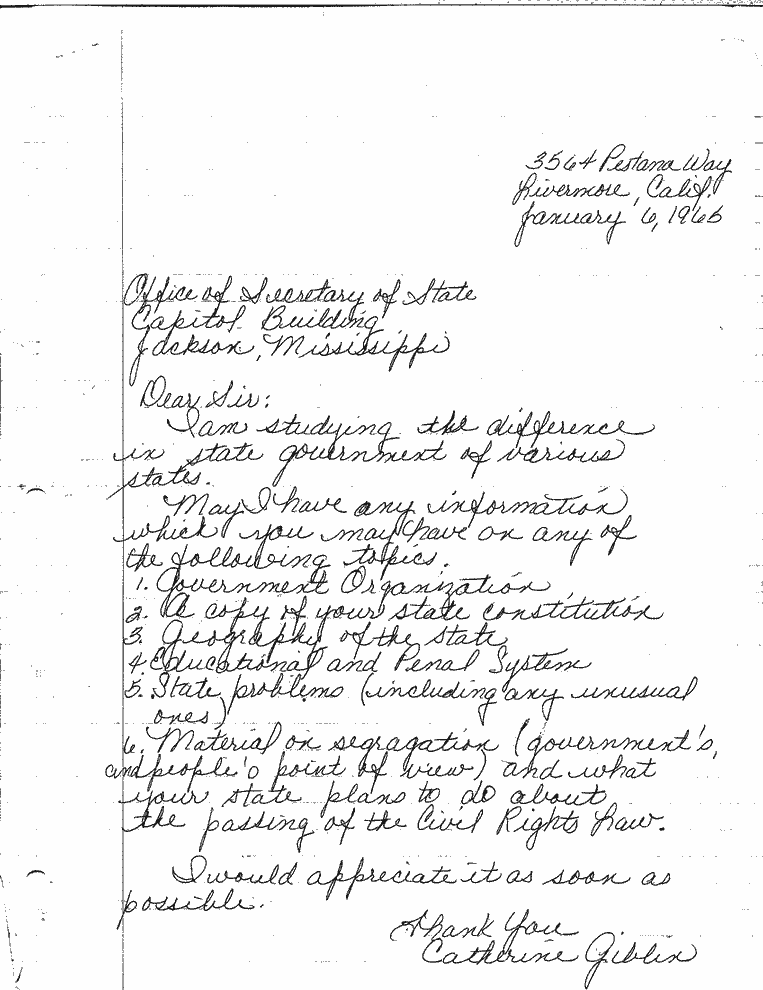 3564 Pestana Way
Livermore, Calif.
January 6, 1965
Office of Secretary of State
Capitol Building
Jackson, Mississippi
Dear Sir:
I am studying the difference
in state government of various
states.
May I have any information
which you may have on any of
the following topics.
1. Government Organization
2. A copy of your state constitution
3. Geography of the state
4. Educational and Penal System
5. State problems (including any unusual
ones)
6. Material on segragation (government's,
and people's point of view) and what
your state plans to do about
the passing of the Civil Rights Law.
I would appreciate it as soon as
possible.
Thank You
Catherine Giblin